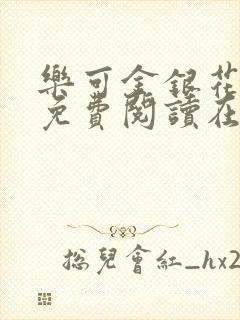 樂可金銀花
免費閱讀在
總兒會紅_hx2